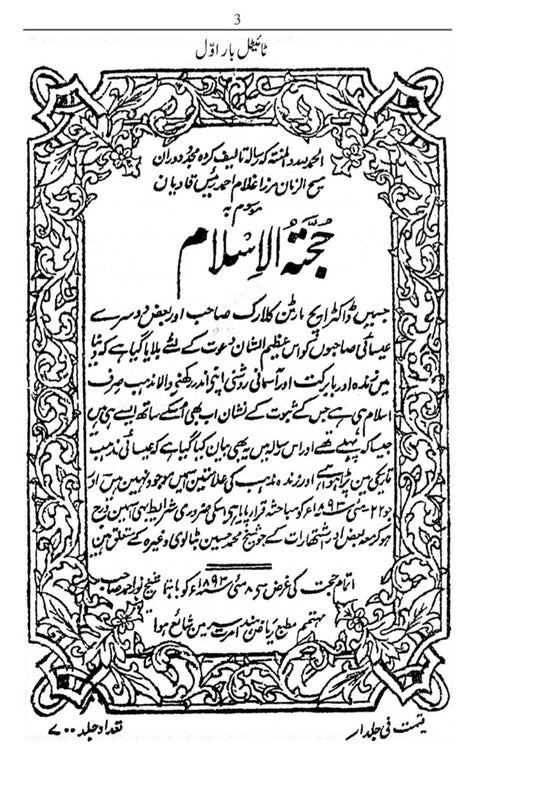 3
ٹائیٹل بار اوّل
الحمد للہ والمنۃ کہ رسالہ تالیف کردہ مجدد دوران
مسیح الزمان مرزا غلام احمد رئیس قادیان
موسوم بہ
حُجَّۃُ الْاِسْلَام
جسمیں ڈاکٹر ایچ مارٹن کلارک صاحب اور بعض دوسرے
عیسائی صاحبوں کو اس عظیم الشان دعوت کے لئے بلایا گیا ہے کہ دنیا
میں زندہ اور بابرکت اور آسمانی روشنی اپنے اندر رکھنے والا مذہب صرف
اسلام ہی ہے جس کے ثبوت کے نشان اب بھی اُسکے ساتھ ایسے ہی ہیں
جیسا کہ پہلے تھے اور اس رسالہ میں یہ بھی بیان کیا گیا ہے کہ عیسائی مذہب
تاریکی میں پڑا ہوا ہے اور زندہ مذہب کی علامتیں اسمیں موجود نہیں ہیں اور
جو ۲۲ مئی ۱۸۹۳ء کو مباحثہ قرار پایا ہے اسکی ضروری شرایط بھی اسمیں درج
ہو کر معہ بعض اور اشتہارات کے جو شیخ محمد حسین بٹالوی وغیرہ کے متعلق ہین
اتمام حجت کی غرض سے ۸ مئی ۱۸۹۳ء کو باہتمام شیخ نور احمد صاحب
مہتمم مطبع ریاض ہند امرتسر مین شائع ہوا
قیمت فی جلد ۱ر
تعداد جلد ۷۰۰